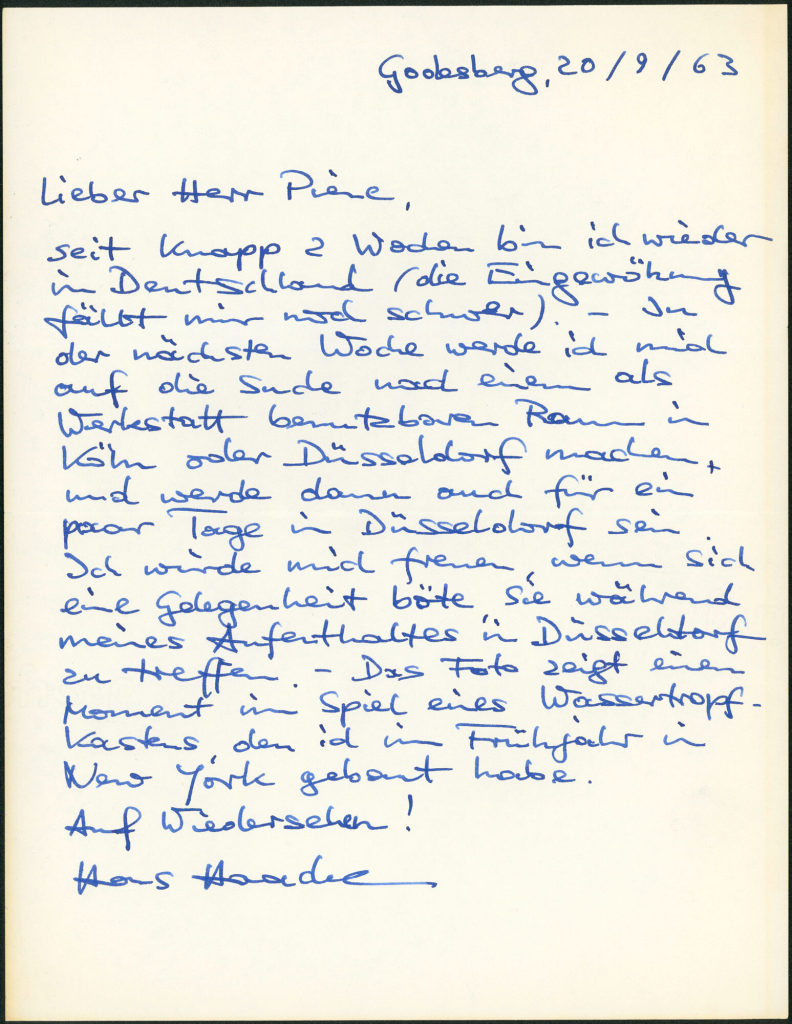 Godesberg, 20/9/63
Lieber Herr Piene,
seit knapp 2 Wochen bin ich wieder
in Deutschland (die Eingewöhnung
fällt mir noch schwer). – In
der nächsten Woche werde ich mich
auf die Suche nach einem als
Werkstatt benutzbaren Raum in
Köln oder Düsseldorf machen,
und werde dann auch für ein
paar Tage in Düsseldorf sein.
Ich würde mich freuen, wenn sich
eine Gelegenheit böte, Sie während
meines Aufenthaltes in Düsseldorf
zu treffen. – Das Foto zeigt einen
Moment im Spiel eines Wassertropf-
kastens, den ich im Frühjahr in
New York gebaut habe.
Auf Wiedersehen!
Hans Haacke